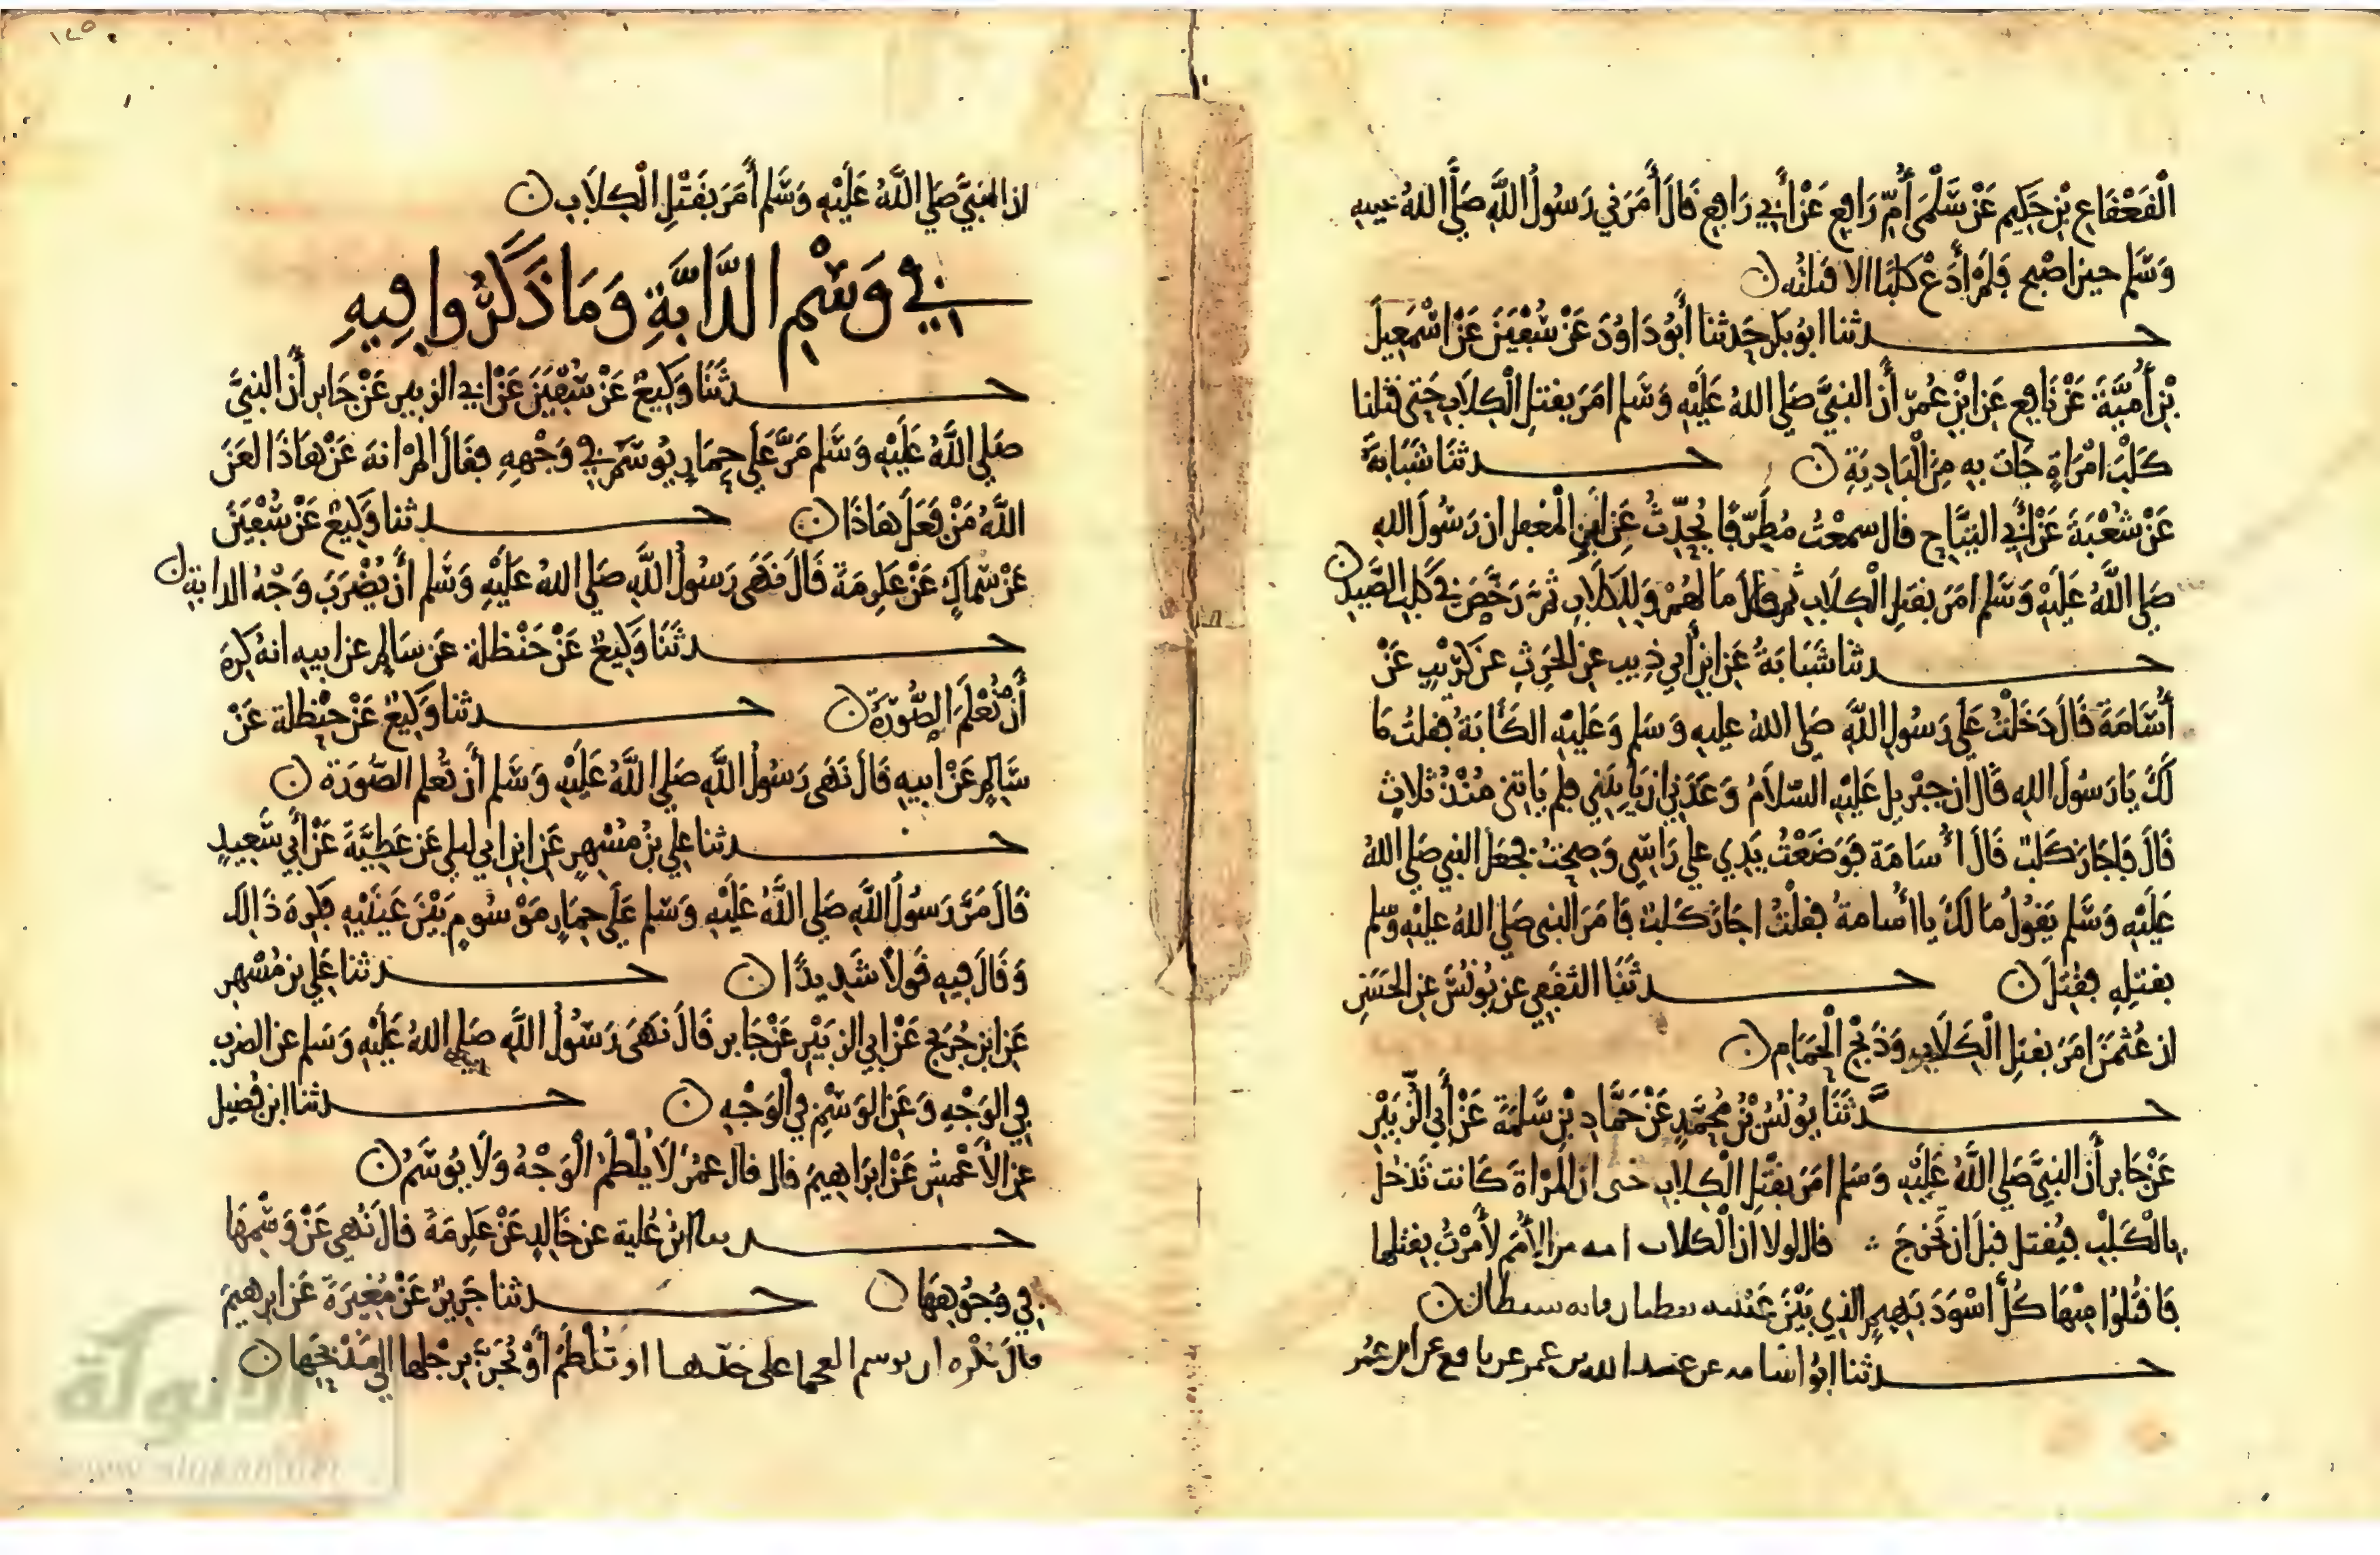 الْقَعْقَاعِ بْنِ حَكِيمٍ عَنْ سَلْمَى أُمِّ رَافِعٍ عَنْ أَبِي رَافِعٍ قَالَ أَمَرَنِي رَسُولُ اللَّهِ صَلَّى اللهُ عليه
وَسَلم حين اصْبح فَلَمْ أَدَعْ كَلْبًا الا قتلتُه ن
حدثنا ابو بكر حَدثنا أَبُو دَاوُدَ عَنْ سُفْيَنَ عَنْ اسْمَعِيلَ
بْنِ أُمَيَّةَ عَنْ نَافِعٍ عَنِ ابْنِ عُمَرَ أَن النبيَّ صَلى اللهُ عَلَيْهِ وَسَلم امَرَ بقتلِ الْكِلَابِ حَتى قتلنا
كَلْبَ امْرَاةٍ جَات بِهِ مِنَ الْبَادِيَةِ ن حدثنَا شَبَابَةُ
عَنْ شُعْبَةَ عَنْ أَبِي التيَّاحِ قال سمعْتُ مُطَرِّفًا يُحَدِّثُ عَنِ ابْنِ الْمغفل ان رَسُولَ اللهِ
صَلى اللَّهُ عَلَيْهِ وَسَلم امَرَ بقتلِ الْكِلَابِ ثم قال مَا لَهُمْ وَلِلْكِلَابِ ثُمَّ رَخَّصَ فِي كَلبِ الصَّيدِ ن
حدثنا شَبَابَةُ عَنِ ابْنِ أَبِي ذِيبٍ عن الحَرِثِ عن كُرَيْبٍ عَنْ
أُسَامَةَ قَالَ دَخَلْتُ عَلَى رَسُولِ اللَّهِ صَلى اللهُ عليهِ وَسَلم وَعَلَيْهِ الكَآبَةُ فقلتُ مَا
لَكَ يَا رَسُولَ اللهِ قَالَ ان جبْرِيل عَلَيْهِ السَّلَامُ وَعَدَنِي ان يَاتِيَنِي فلم يَاتني مُنْذُ ثلاثٍ
قَالَ فَاجَازَ كَلْبٌ قَالَ أُسَامَة فَوَضَعْتُ يَدِي على رَاسِي وَصِحْتُ فجعَلَ النبي صَلى اللهُ
عَلَيْهِ وَسَلم يَقُولُ مَا لَكَ يا أُسامةُ فقلْتُ اجَازَ كَلبٌ فَامَرَ النبي صَلى اللهُ عليْهِ وسلم
بقتلِهِ فقُتِلَ ن حدثَنَا الثقَفي عن يُونُسَ عن الحَسَنِ
ان عُثمَنَ امَرَ بقتلِ الْكِلَابِ وَذَبْحِ الْحَمَامِ ن
حدَّثَنَا يُونُسُ بْنُ مُحَمَّدٍ عَنْ حَمَّادِ بْنِ سَلَمَةَ عَنْ أَبِي الزُّبَيْرِ
عَنْ جَابر أَن النبيَّ صَلى اللَّهُ عَلَيْهِ وَسَلم امَرَ بقَتْلِ الْكِلابِ حَتى ان الْمَرْاةَ كَانت تَدْخُلُ
بِالْكَلْبِ فيُقتل قبلَ ان تَخْرُجَ قال لولا أن الْكلاب امه من الأُمَمِ لَأَمَرْتُ بقتلها
فَاقتُلُوا مِنْهَا كُلَّ اسْوَدَ بَهِيمٍ الذي بَيْنَ عَيْنَيْه نقطتان فانه شيطان ن
حدثنا ابُو اسَامه عن عبيد الله بن عمر عن نافع عن ابن عُمَر
ان النبيَّ صَلى اللَّهُ عَلَيْهِ وَسَلم أَمَرَ بقَتْلِ الْكِلَابِ ن
فِي وَسْمِ الدَّابَّةِ وَمَا ذَكَرُوا فِيهِ
حدثَنَا وَكِيعٌ عَنْ سُفْيَنَ عَنْ ابي الزبيرِ عَنْ جَابر أَن النبيَّ
صَلى اللَّهُ عَلَيْهِ وَسَلم مَرَّ عَلَى حِمَارٍ يُوسَمُ فِي وَجْهِهِ فقَالَ أَلَمْ انهَ عَنْ هَاذَا لَعَنَ
اللَّهُ مَنْ فَعَلَ هَاذَا ن حدثنا وَكِيعٌ عَنْ سُفْيَنَ
عَنْ سمَاكٍ عَنْ عِكْرِمَةَ قَالَ نَهَى رَسُولُ اللَّهِ صَلى اللهُ عَلَيْهِ وَسَلم أَنْ يُضْرَبَ وَجْهُ الدابةِ ن
حدثَنَا وَكِيعٌ عَنْ حَنْظلةَ عَن سَالِم عن ابيهِ انهُ كَرِهَ
أَنْ تُعْلَمَ الصُّورَةُ ن حدثنا وَكِيعٌ عَنْ حَنْظلة عَنْ
سَالِم عَنْ ابيهِ قَالَ نَهَى رَسُولُ اللَّهِ صَلى اللَّهُ عَلَيْهِ وَسَلم أَن تُعْلم الصُّورَة ن
حدثنا علي بنُ مُسْهِرٍ عَنِ ابن ابي ليلى عَن عَطِيَّةَ عَنْ أَبِي سَعِيدٍ
قَالَ مَرَّ رَسُولُ اللَّهِ صَلى اللَّهُ عَلَيْهِ وَسَلم عَلَى حِمَارٍ مَوْسُومٍ بَيْنَ عَيْنَيْهِ فكرِهَ ذَالِكَ
وَقَالَ فِيهِ قَوْلًا شَدِيدًا ن حدثنا عَلي بن مُسْهِر
عَنِ ابنِ جُرَيجٍ عَنْ ابي الزبَيْرِ عَنْ جَابر قَالَ نَهَى رَسُولُ اللَّهِ صَلى اللهُ عَلَيْهِ وَسَلم عن الضربِ
فِي الوَجْهِ وَعَنِ الوَسْمِ فِي الْوَجْهِ ن حدثنا ابن فُضيل
عن الاعْمشِ عَنْ ابرَاهِيمَ قال قال عمَرُ لَا يُلْطَمُ الْوَجْهُ وَلَا يُوسَمُ ن
حدثنا ابْنُ عُليةَ عن خَالِدٍ عَنْ عكْرِمَةَ قَالَ نُهِيَ عَنْ وَسْمِهَا
فِي وُجُوهِهَا ن حدثنا جَرِيرٌ عَنْ مُغِيرَةَ عَن ابرهيمَ
قال يكره ان يوسم العجما على خدها او تُلْطَمُ أَوْ تُجَرَّ برجلها الى مَذْبَحِهَا ن
الألوكة